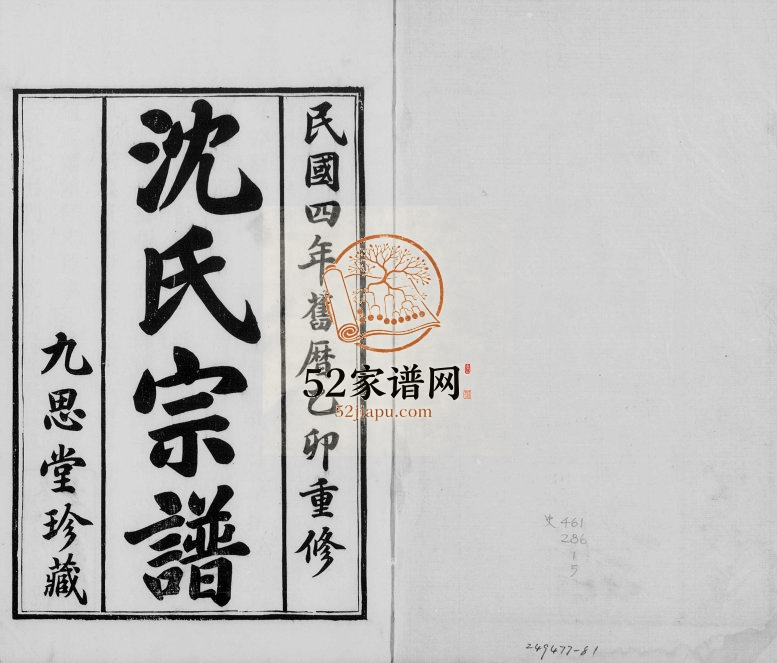 民國四年舊曆乙卯重修
沈氏宗譜
九思堂珍藏
52家谱网
52jiapu.com
史461
286
1
5
249477-81